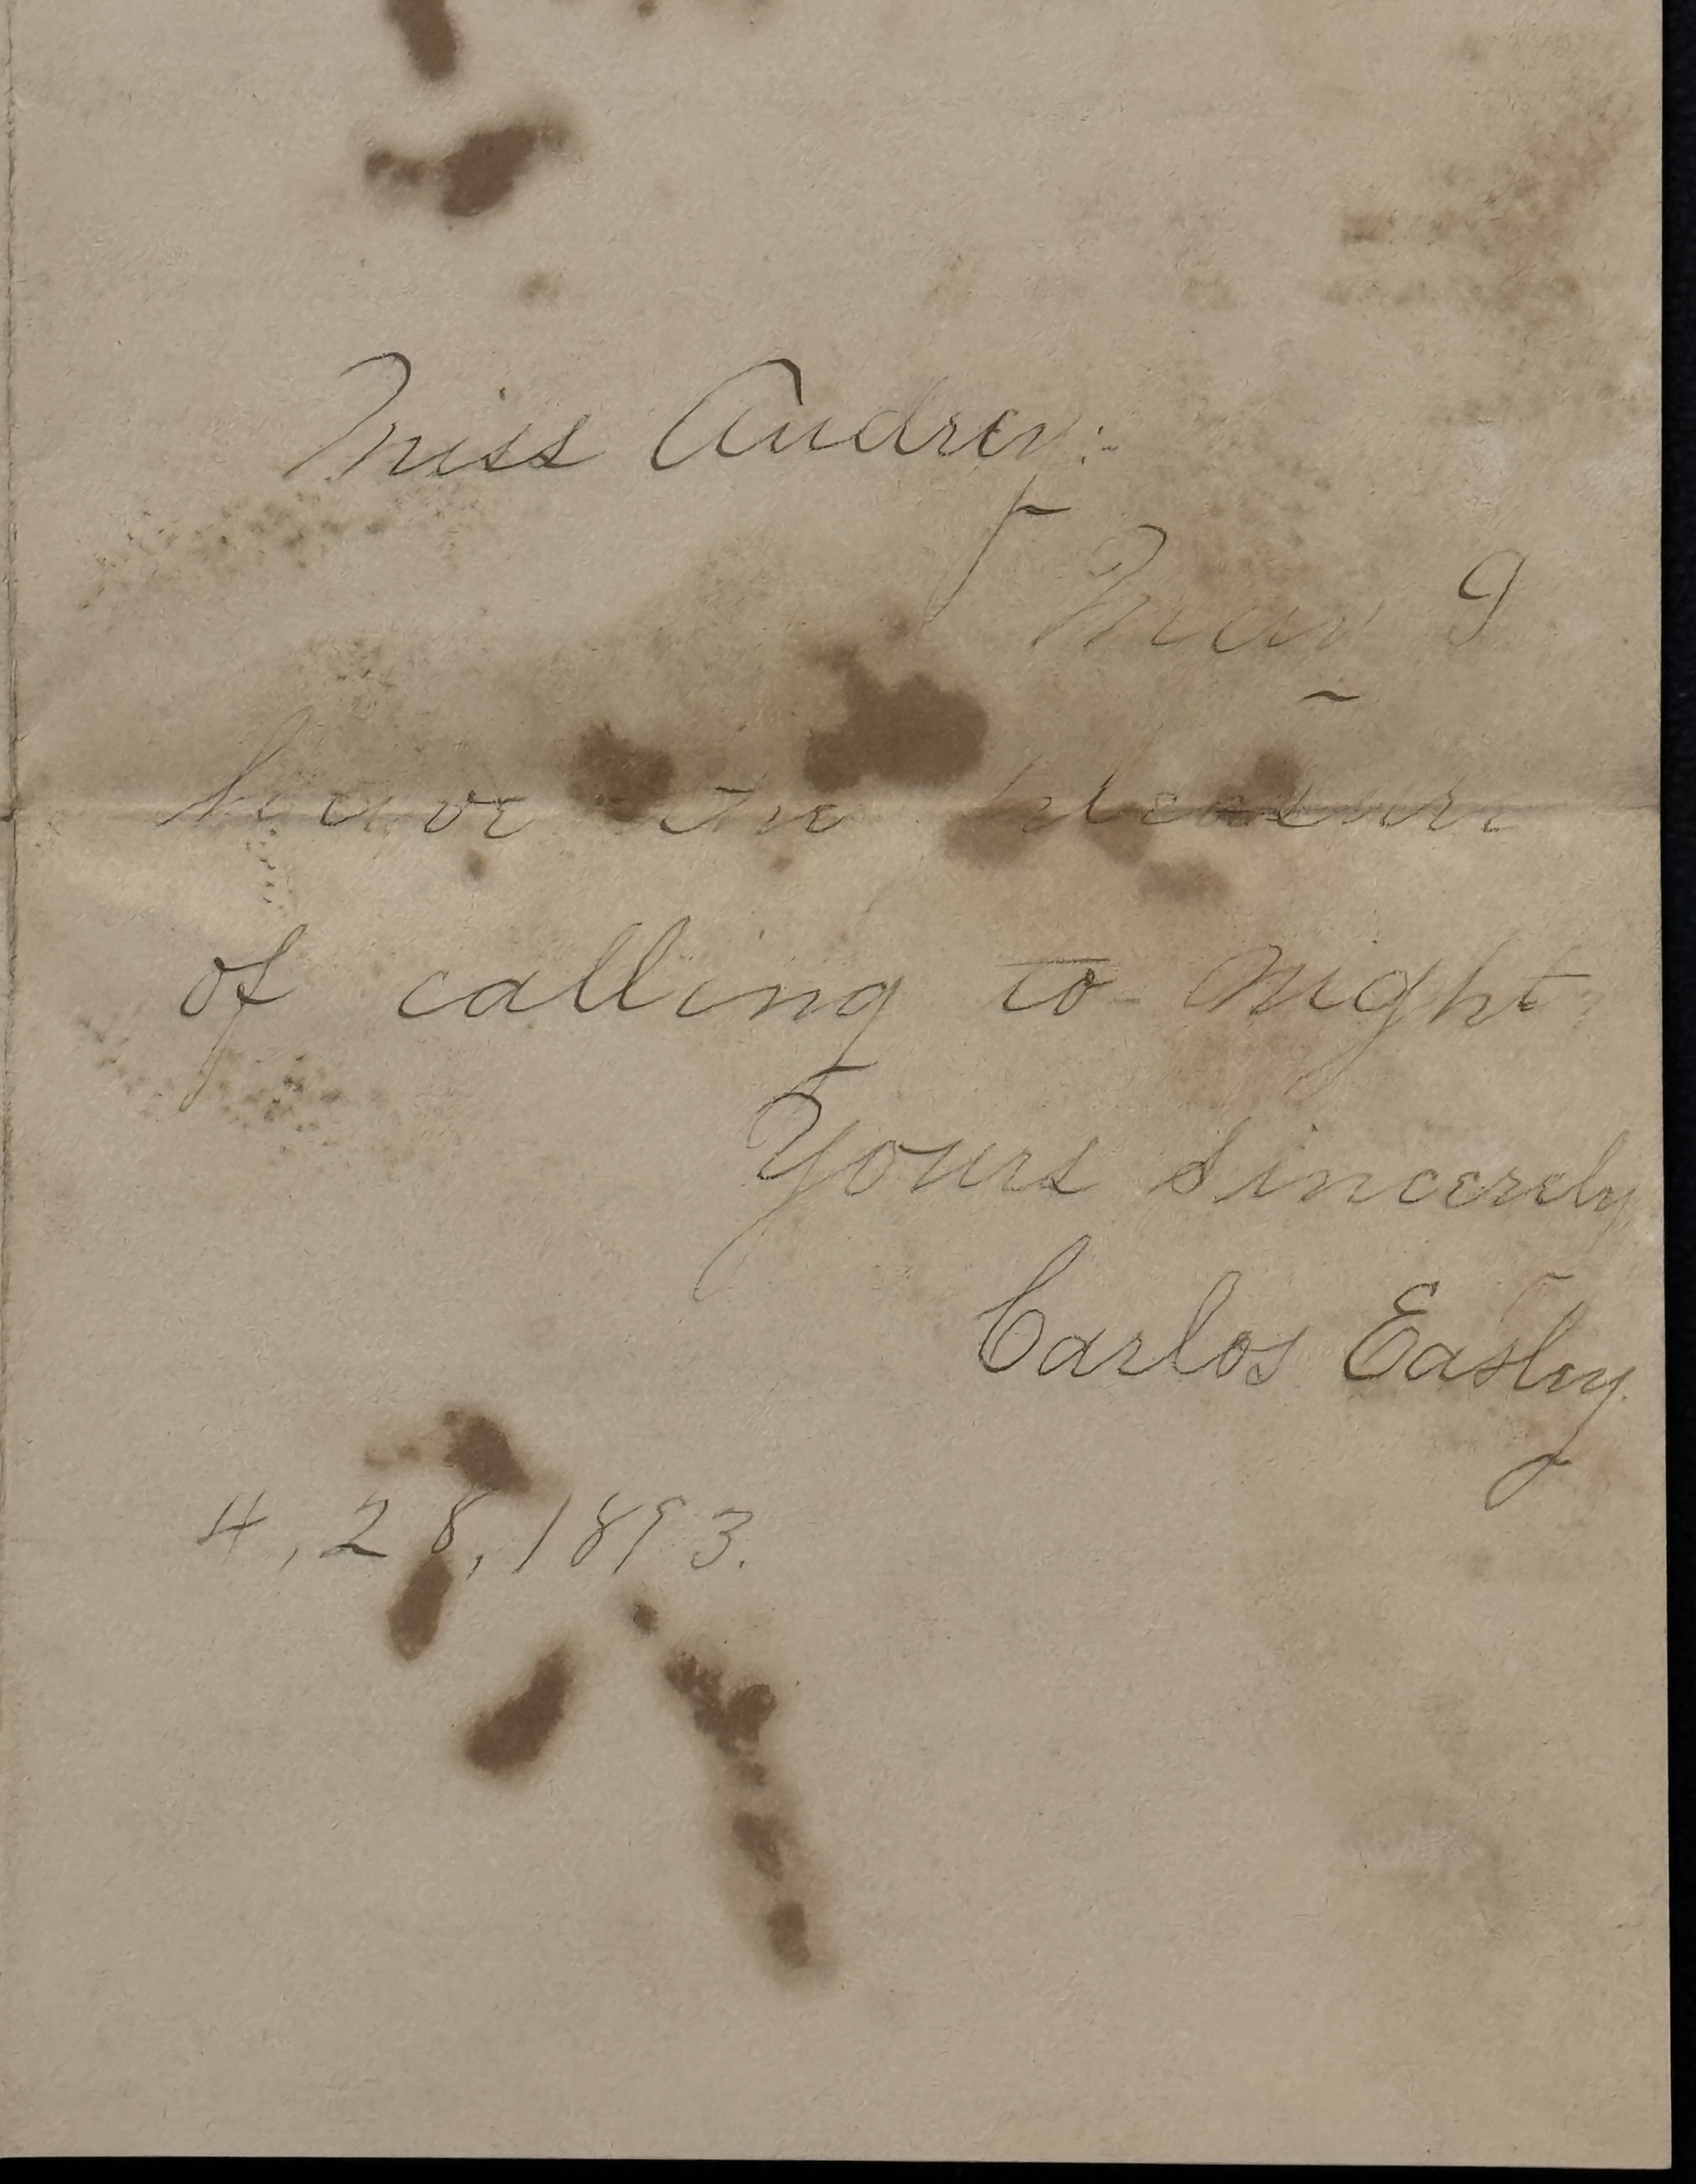 Miss Audrey:
May I
have the pleasure
of calling to-night.
Yours sincerely
Carlos Easley.
4, 28, 1893.